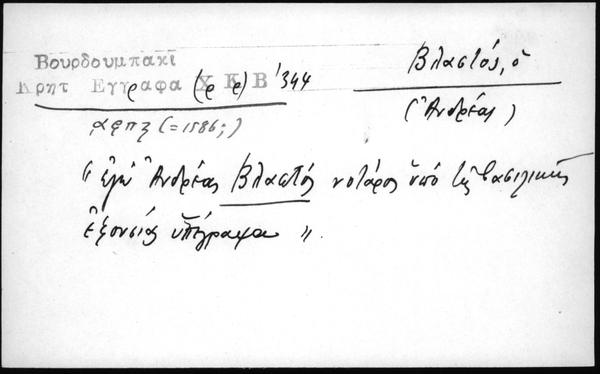 Βουρδουμπακι
Κρητ Εγγραφα Χ Κ Β' 344
(ρ ρ)
Βλαστός, ὁ
(Ἀνδρέας)
αφπζ (=1586;)
"ἐγὼ Ἀνδρέας Βλαστός νοτάρος ἀπό τῆς βασιλικῆς
ἐξουσίας ὑπέγραψα".